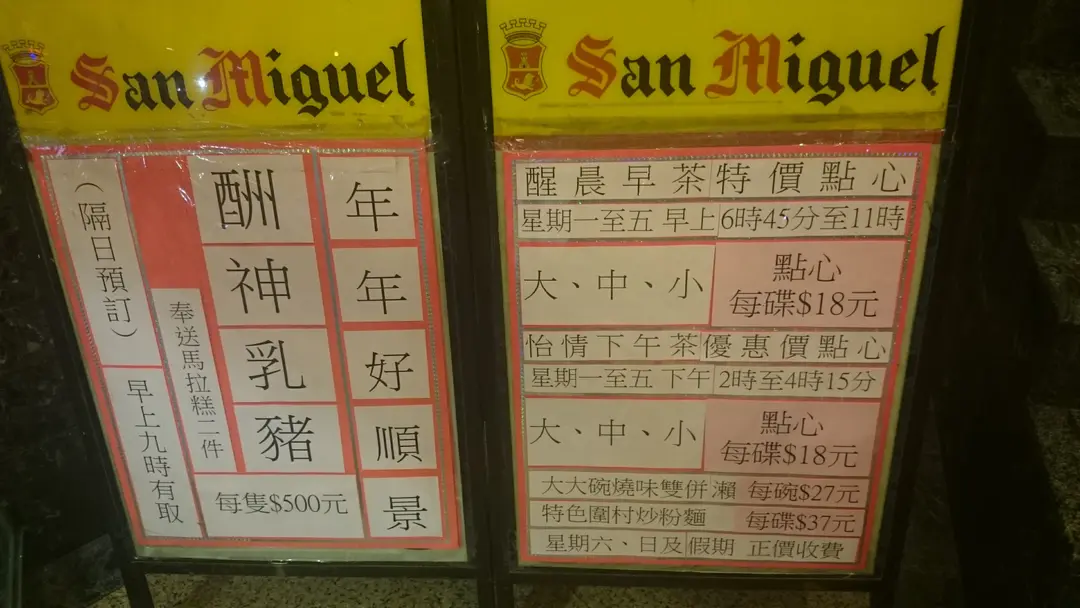 San Miguel
年年好順景
酬神乳豬
每隻$500元
奉送馬拉糕二件
(隔日預訂)
早上九時有取
San Miguel
醒晨早茶特價點心
星期一至五 早上 6時45分至11時
大、中、小 點心
每碟$18元
怡情下午茶優惠價點心
星期一至五 下午 2時至4時15分
大、中、小 點心
每碟$18元
大大碗燒味雙併瀨 每碗$27元
特色圍村炒粉麵 每碟$37元
星期六、日及假期 正價收費